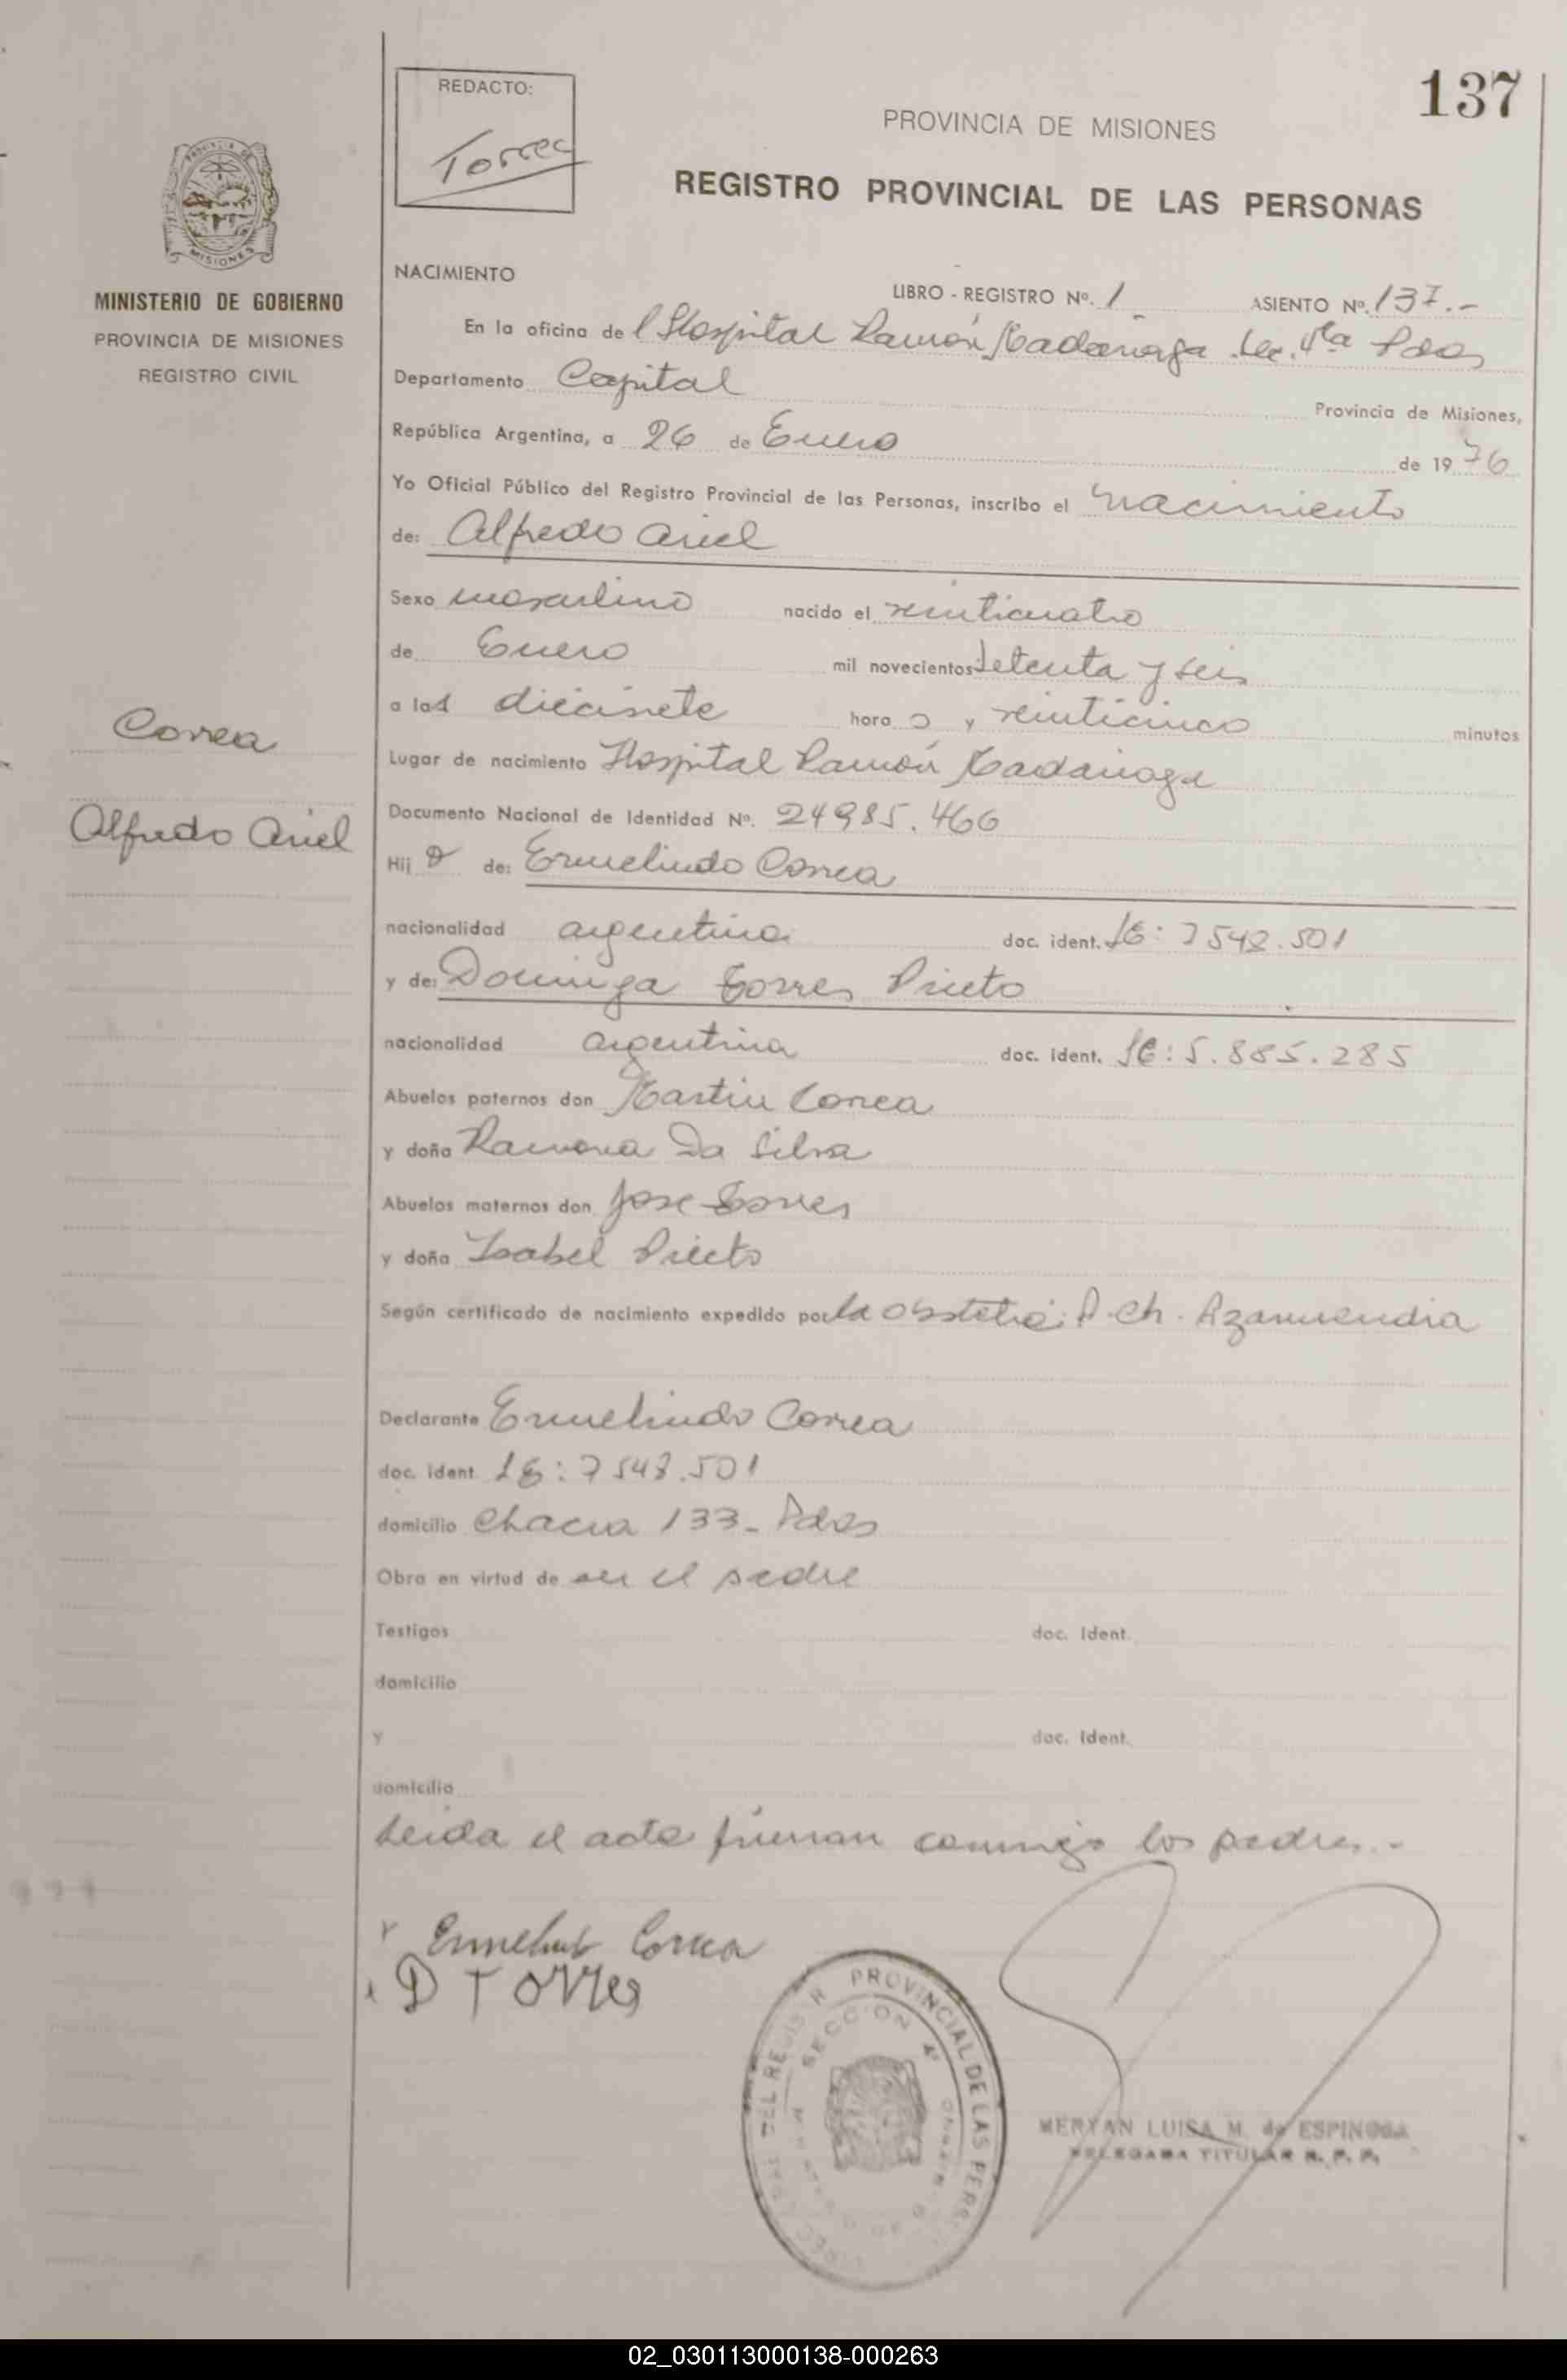 137
REDACTO:
Torres
PROVINCIA DE MISIONES
REGISTRO PROVINCIAL DE LAS PERSONAS
MISIONES
MINISTERIO DE GOBIERNO
PROVINCIA DE MISIONES
REGISTRO CIVIL
Correa
Alfredo Ariel
NACIMIENTO
LIBRO - REGISTRO Nº. 1 ASIENTO Nº. 137.-
En la oficina de l Hospital Ramón Madariaga Sec. 4ta Pdas
Departamento Capital Provincia de Misiones,
República Argentina, a 26 de Enero de 1976
Yo Oficial Público del Registro Provincial de las Personas, inscribo el nacimiento
de: Alfredo Ariel
Sexo masculino nacido el veinticuatro
de Enero mil novecientos setenta y seis
a las diecisiete hora s y veinticinco minutos
Lugar de nacimiento Hospital Ramón Madariaga
Documento Nacional de Identidad Nº. 24985.466
Hij o de: Ermelindo Correa
nacionalidad argentina doc. ident. LE: 7548.501
y de: Dominga Torres Prieto
nacionalidad argentina doc. ident. LC: 5.885.285
Abuelos paternos don Martin Correa
y doña Ramona Da Silva
Abuelos maternos don Jose Torres
y doña Isabel Prieto
Según certificado de nacimiento expedido por la obstetra: Ch. Azarmendia
Declarante Ermelindo Correa
doc. ident. LE: 7548.501
domicilio Chacra 133- Pdas
Obra en virtud de ser el padre
Testigos doc. ident.
domicilio
y doc. ident.
domicilio
Leida el acta firman conmigo los padres.-
Ermelindo Correa
D Torres
PROVINCIAL DE LAS PERS
SECCION 4ª
MERYAN LUISA M. de ESPINOSA
DELEGADA TITULAR R. P. P.
02_030113000138-000263